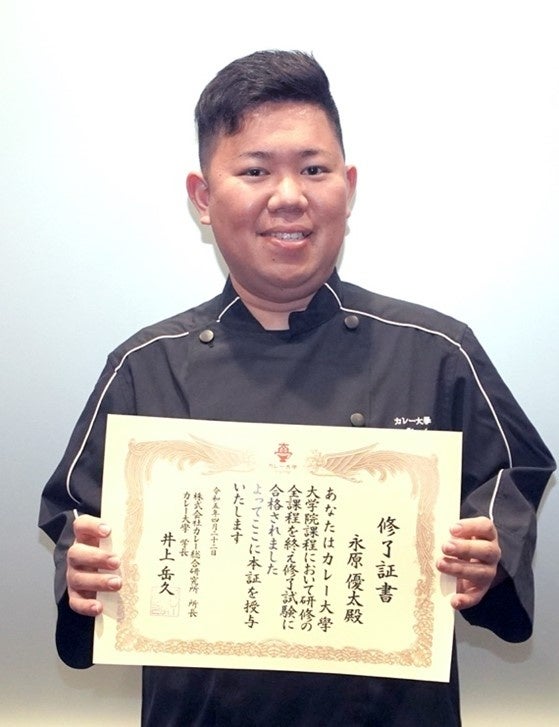 カレー大學
カレー大學
修了証書
永原 優太殿
あなたはカレー大學
大学院課程において研修の
全課程を終え修了試験に
合格されました
よってここに本証を授与
いたします
令和五年四月二十二日
株式会社カレー総合研究所 所長
カレー大學 学長
井上 岳久